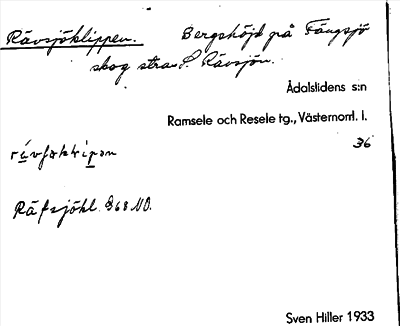 Rävsjöklippen. Bergshöjd på Fängsjö
skog strax S. Rävsjön.
Ådalslidens s:n
Ramsele och Resele tg., Västernorrl. l.
36
Räfsjökl. 968 NO.
Sven Hiller 1933